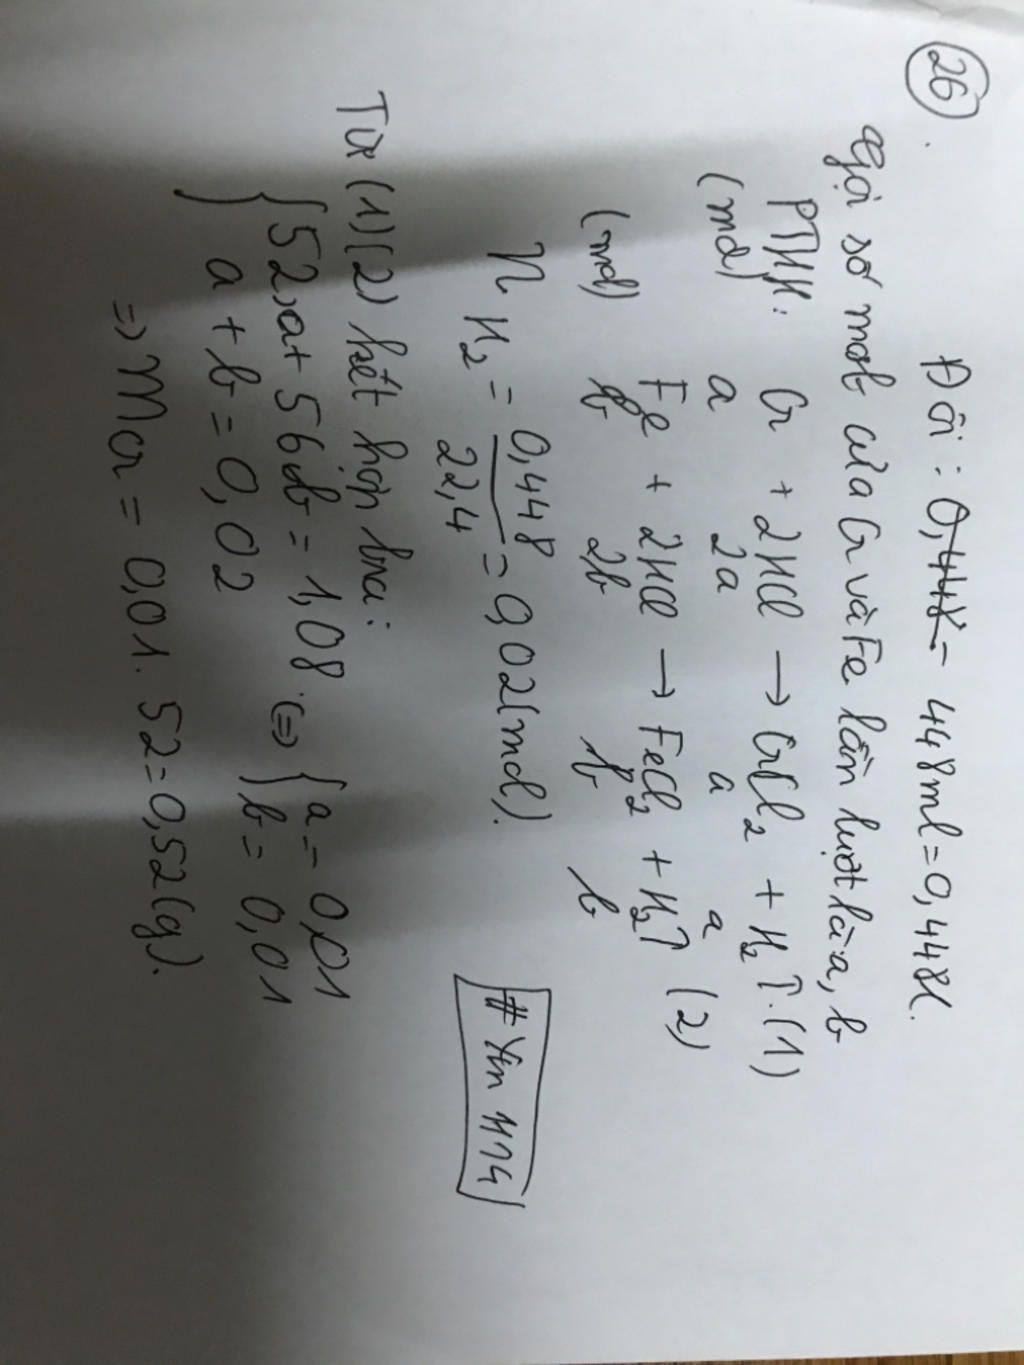 26.
Đổi: 448ml = 0,448l.
Gọi số mol của Cr và Fe lần lượt là a, b
PTHH: Cr + 2HCl → CrCl2 + H2↑. (1)
(mol) a 2a a a
Fe + 2HCl → FeCl2 + H2↑ (2)
(mol) b 2b b b
n H2 = 0,448 / 22,4 = 0,02 (mol).
# Yin H14
Từ (1)(2) kết hợp bra:
{ 52a + 56b = 1,08 <=> { a = 0,01
a + b = 0,02 b = 0,01
=> mCr = 0,01. 52 = 0,52 (g).